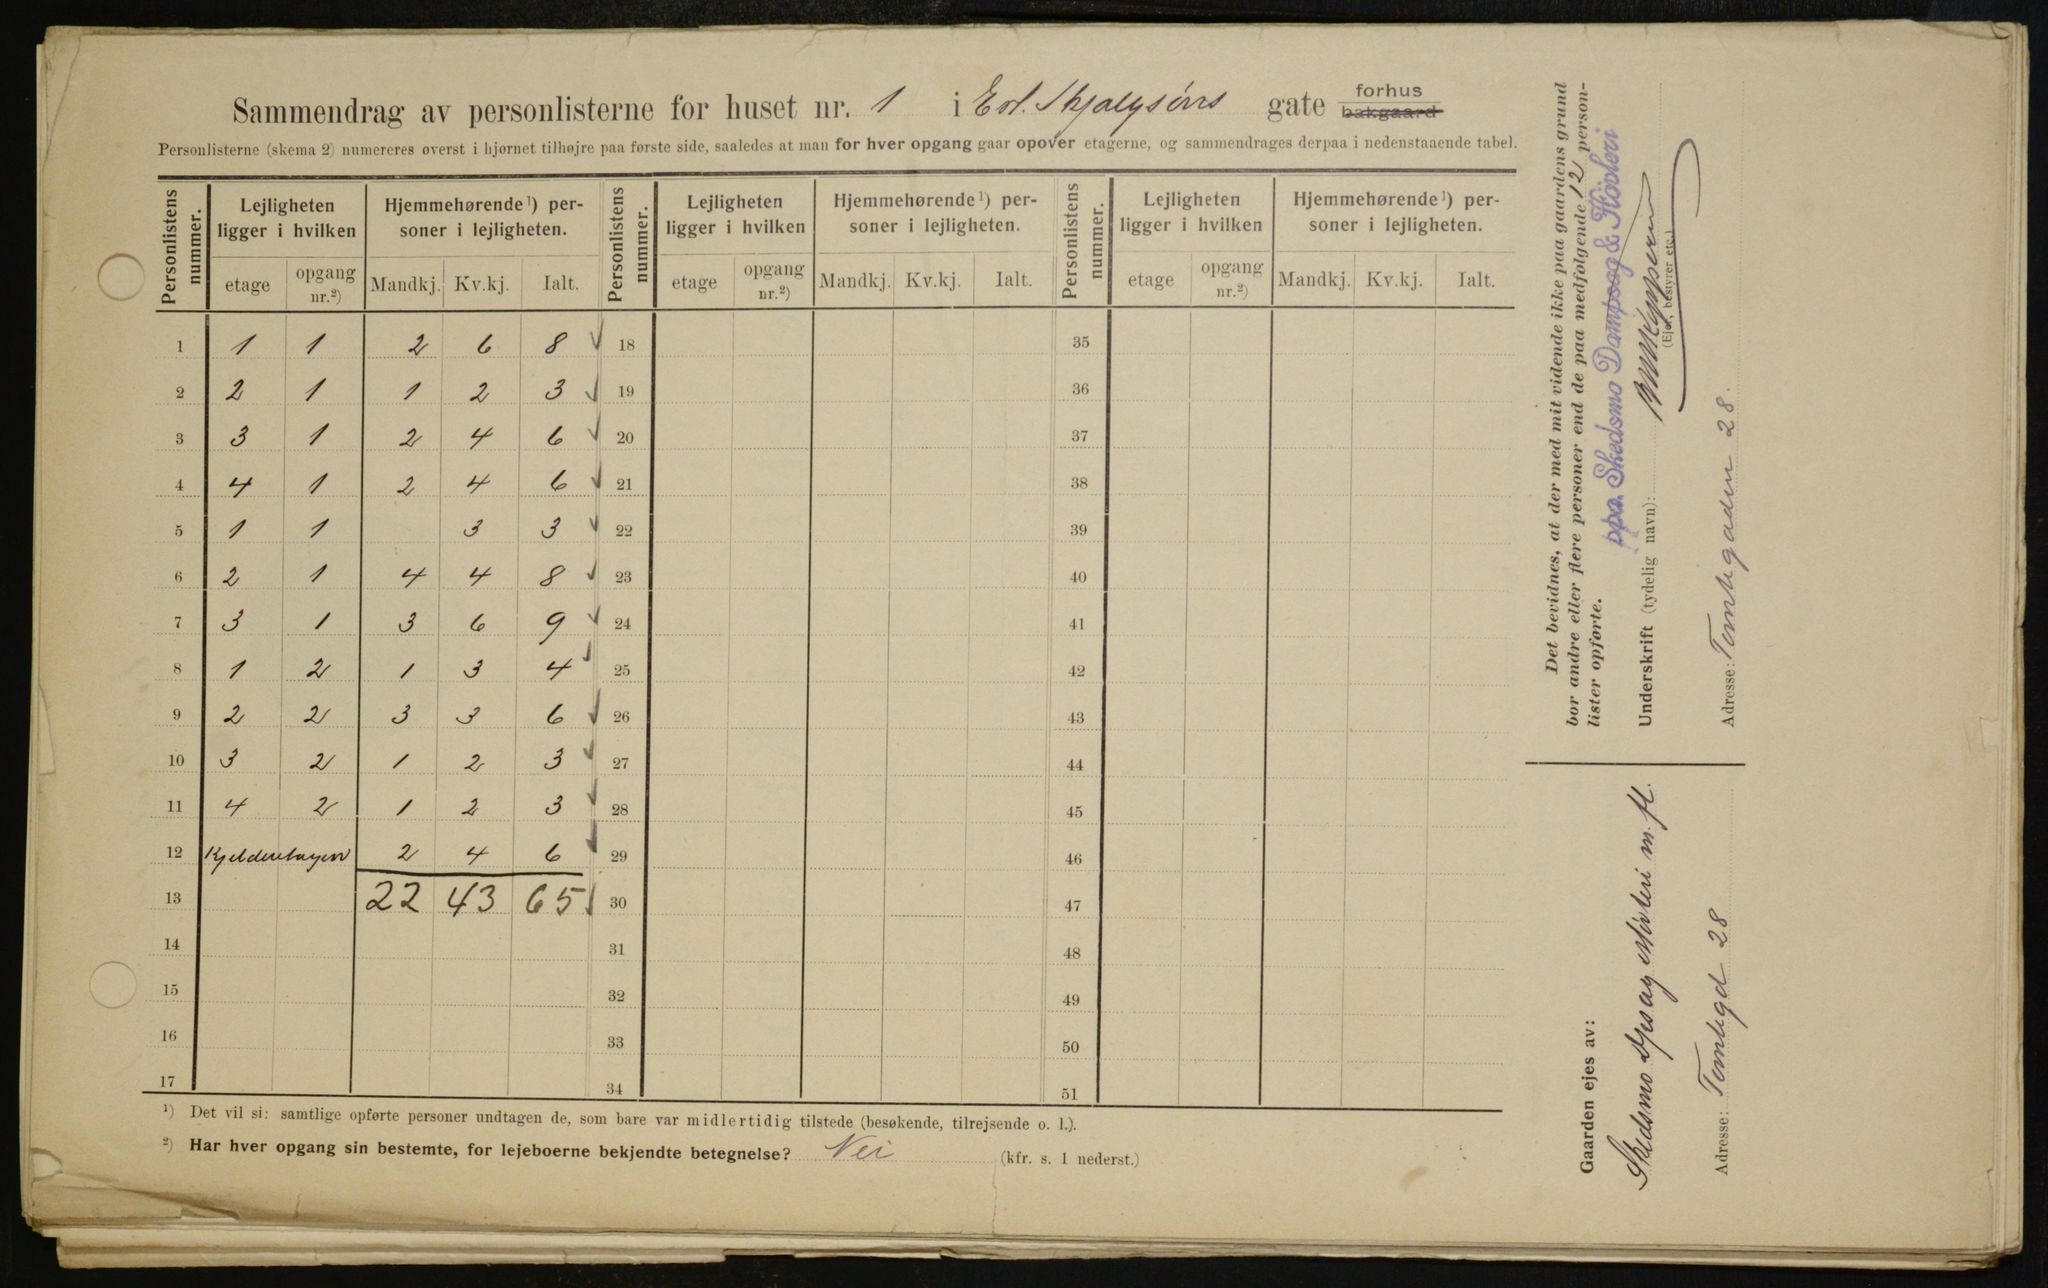 Sammendrag av personlisterne for huset nr. 1 i Erl. Skjalgsøns gate forhus
bakgaard
Personlisterne (skema 2) numereres øverst i hjørnet tilhøjre paa første side, saaledes at man for hver opgang gaar opover etagerne, og sammendrages derpaa i nedenstaaende tabel.
Personlistens nummer. Lejligheten ligger i hvilken Hjemmehørende¹) personer i lejligheten. Personlistens nummer. Lejligheten ligger i hvilken Hjemmehørende¹) personer i lejligheten. Personlistens nummer. Lejligheten ligger i hvilken Hjemmehørende¹) personer i lejligheten.
etage opgang nr.²) Mandkj. Kv.kj. Ialt. etage opgang nr.²) Mandkj. Kv.kj. Ialt. etage opgang nr.²) Mandkj. Kv.kj. Ialt.
1 1 1 2 6 8 18 35
2 2 1 1 2 3 19 36
3 3 1 2 4 6 20 37
4 4 1 2 4 6 21 38
5 1 1 3 3 22 39
6 2 1 4 4 8 23 40
7 3 1 3 6 9 24 41
8 1 2 1 3 4 25 42
9 2 2 3 3 6 26 43
10 3 2 1 2 3 27 44
11 4 2 1 2 3 28 45
12 Kjelderetagen 2 4 6 29 46
13 22 43 65 30 47
14 31 48
15 32 49
16 33 50
17 34 51
¹) Det vil si: samtlige opførte personer undtagen de, som bare var midlertidig tilstede (besøkende, tilrejsende o. l.).
²) Har hver opgang sin bestemte, for lejeboerne bekjendte betegnelse? Nei (kfr. s. 1 nederst.)
Det bevidnes, at der med mit vidende ikke paa gaardens grund
bor andre eller flere personer end de paa medfølgende 12 person-
lister opførte.
ppa. Skedsmo Dampsag & Høvleri
Underskrift (tydelig navn):
(Ejer, bestyrer etc.)
Adresse: Tomtegaden 28.
Gaarden ejes av:
Skedsmo Dpsag Høvleri m. fl.
Adresse: Tomtegd 28